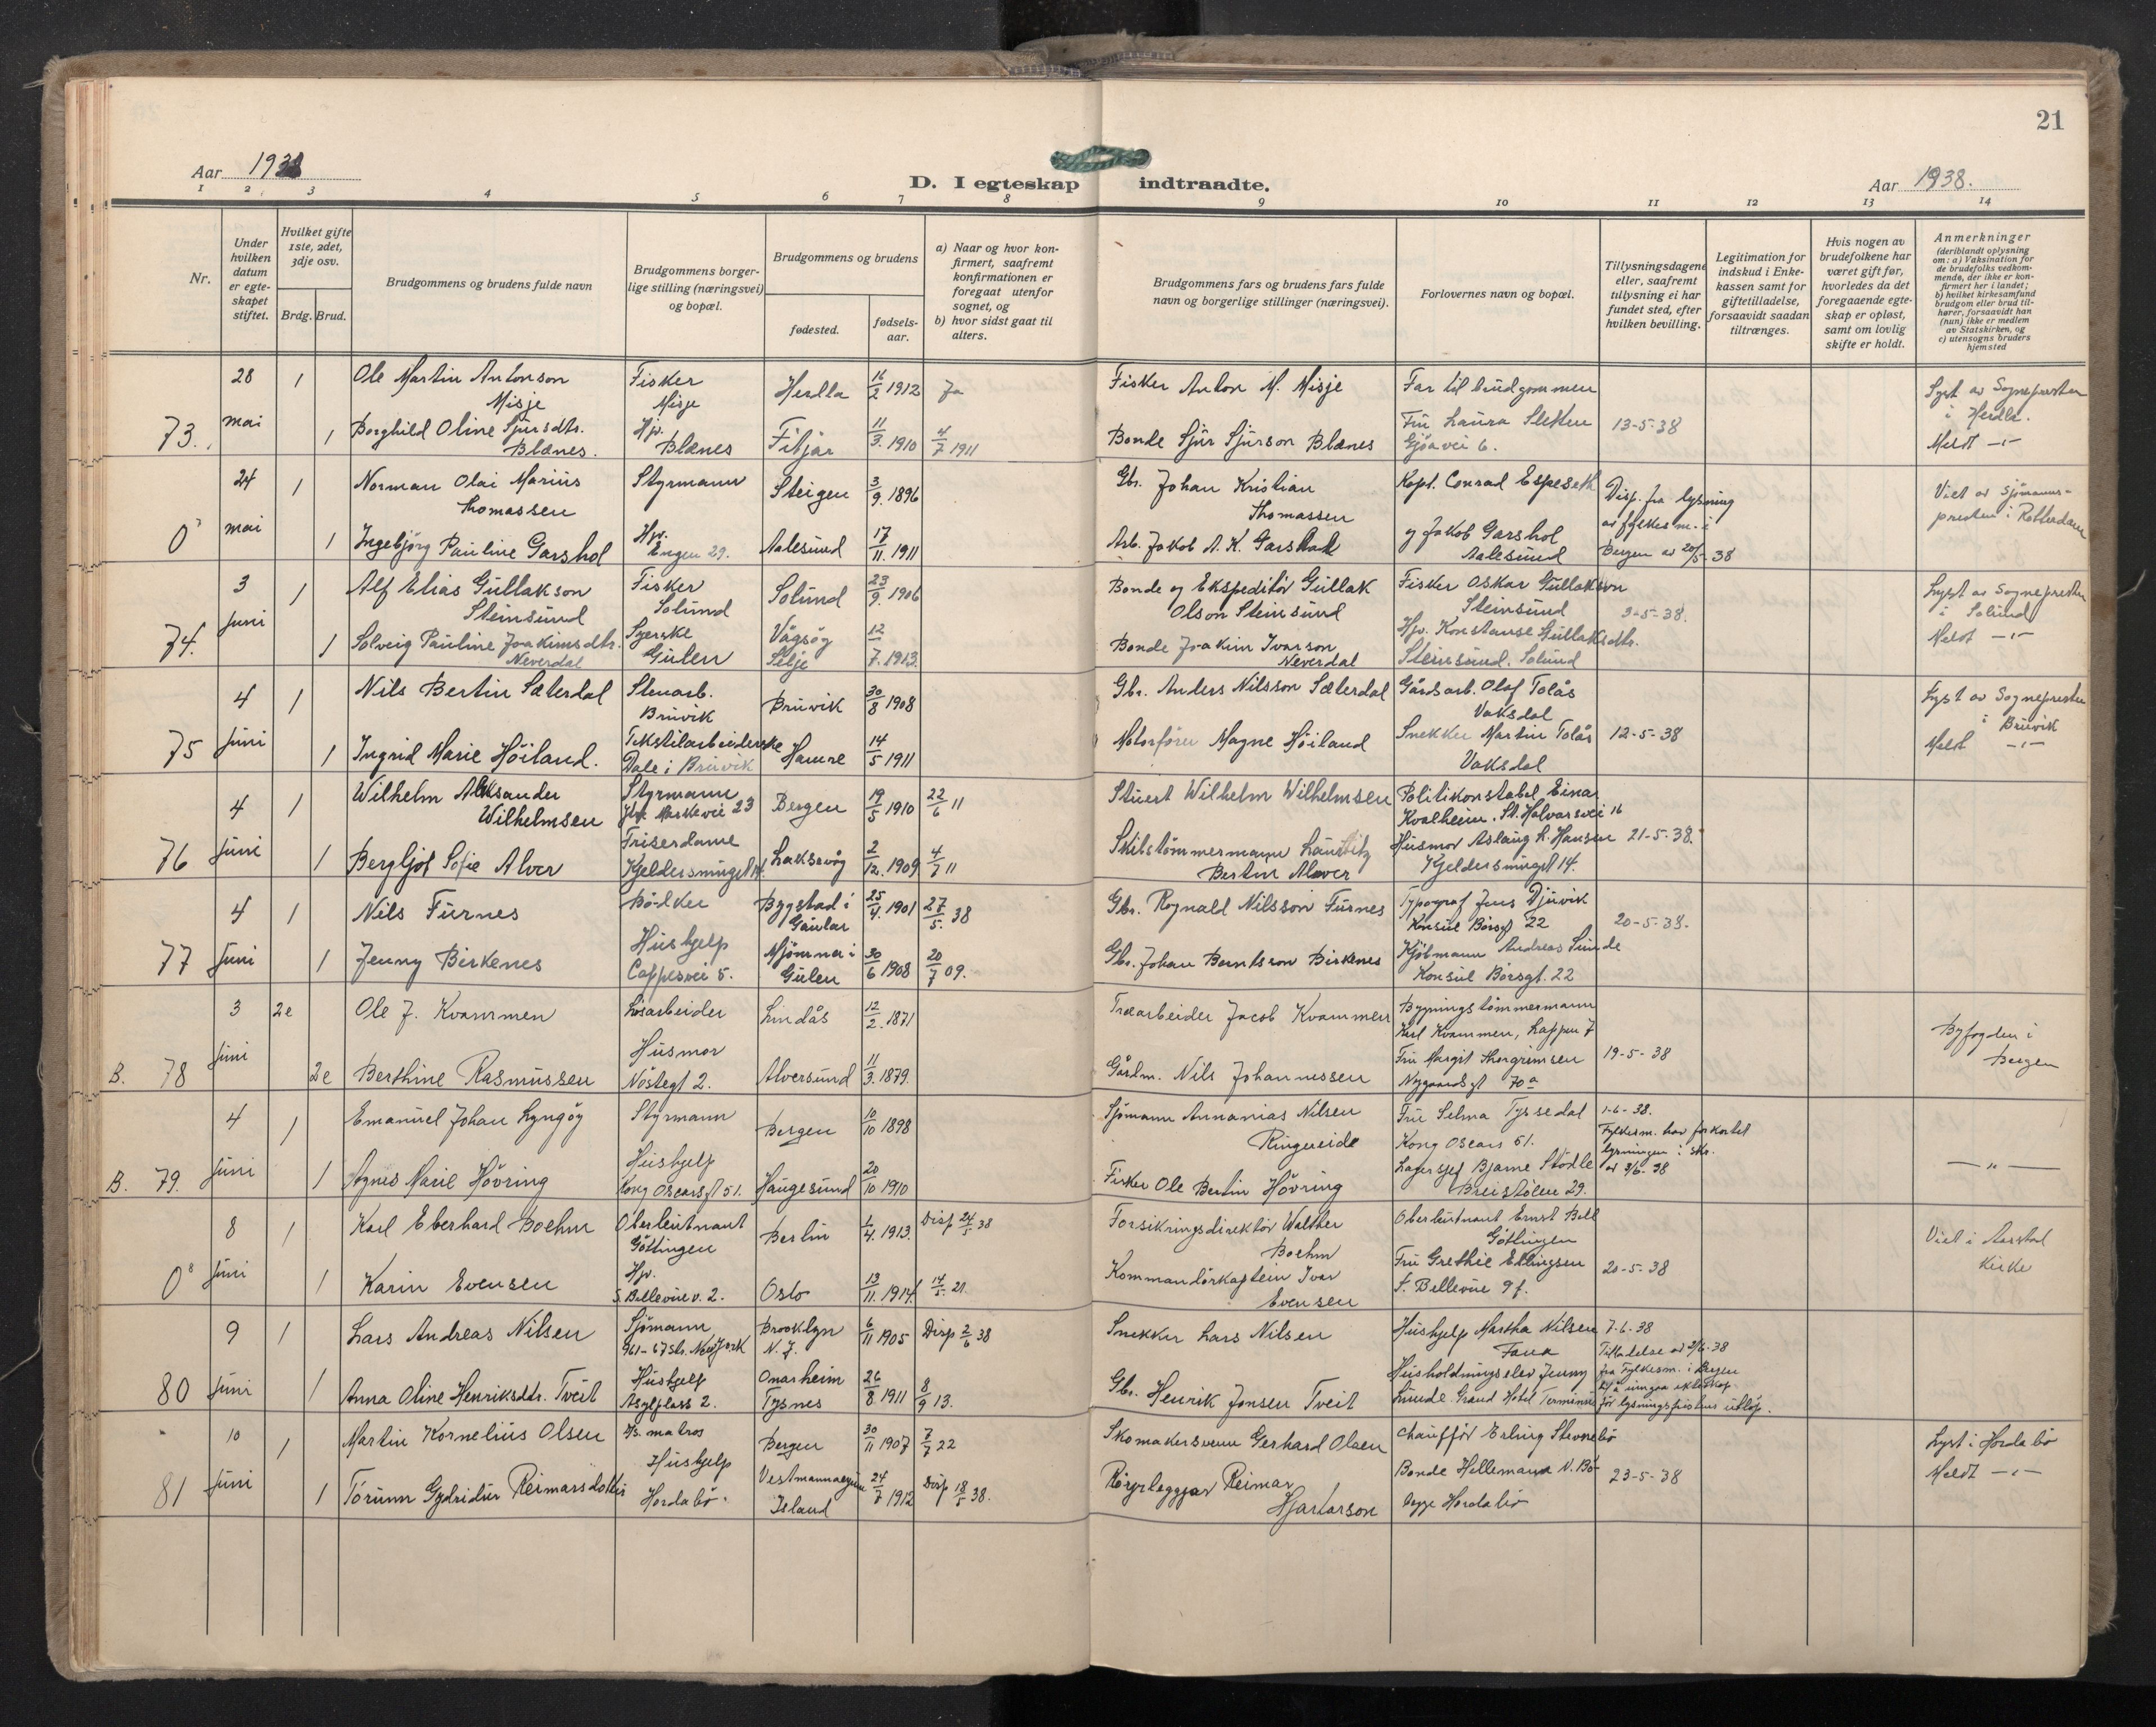 21
Aar 1938
D. I egteskap indtraadte.
Aar 1938.
1 2 3 4 5 6 7 8 9 10 11 12 13 14
Nr.
Under hvilken datum er egteskapet stiftet.
Hvilket gifte 1ste, 2det, 3dje osv.
Brdg. Brud.
Brudgommens og brudens fulde navn
Brudgommens borgerlige stilling (næringsvei) og bopæl.
Brudgommens og brudens
fødested.
fødselsaar.
a) Naar og hvor konfirmert, saafremt konfirmationen er foregaat utenfor sognet, og
b) hvor sidst gaat til alters.
Brudgommens fars og brudens fars fulde navn og borgerlige stillinger (næringsvei).
Forlovernes navn og bopæl.
Tillysningsdagene eller, saafremt tillysning ei har fundet sted, efter hvilken bevilling.
Legitimation for indskud i Enkekassen samt for giftetilladelse, forsaavidt saadan tiltrænges.
Hvis nogen av brudefolkene har været gift før, hvorledes da det foregaaende egteskap er opløst, samt om lovlig skifte er holdt.
Anmerkninger (deriblandt oplysning om: a) Vaksination for de brudefolks vedkommende, der ikke er konfirmert her i landet; b) hvilket kirkesamfund brudgom eller brud tilhører, forsaavidt han (hun) ikke er medlem av Statskirken, og c) utensogns bruders hjemsted
28 1 Ole Martin Antonson Misje Fisker Misje Herdla 16/2 1912 Ja Fisker Anton M. Misje Far til brudgommen Lyst av Sognepresten i Herdla.
73. mai 1 Borghild Oline Sjursdtr. Blænes. Hjv. Blænes Fitjar 11/3. 1910 4/7 1911 Bonde Sjur Sjurson Blænes Fru Laura Sletten Gjøavei 6. 13-5-38 Meldt -"-
24 1 Norman Olai Marius Thomassen Styrmann Steigen 3/9. 1896 Gbr. Johan Kristian Thomassen Kapt. Conrad Espeseth Disp. fra lysning Viet av Sjømannspresten i Rotterdam
0 mai 1 Ingebjørg Pauline Garshol Hjv. Engen 29. Aalesund 17/11. 1911 Arb. Jakob A. K. Garshol og Jakob Garshol Aalesund av fylkesm. i Bergen av 20/5-38
3 1 Alf Elias Gullakson Steinsund Fisker Solund Solund 23/9. 1906 Bonde og Ekspeditør Gullak Olson Steinsund Fisker Oskar Gullakson Steinsund 3-5-38. Lyst av Sognepresten i Solund
74. Juni 1 Solveig Pauline Joakimsdtr. Neverdal Syerske Gulen Vågsøy Selje 12/7. 1913. Bonde Joakim Ivarson Neverdal Hjv. Konstanse Gullaksdtr. Steinsund. Solund Meldt -"-
4 1 Nils Bertin Sæterdal Stenarb. Bruvik Bruvik 30/8 1908 Gbr. Anders Nilsson Sæterdal Gårdsarb. Olaf Tolås Vaksdal Lyst av Sognepresten i Bruvik
75 Juni 1 Ingrid Marie Höiland. Tekstilarbeiderske Dale i Bruvik Hamre 14/5 1911 Motorfører Magne Höiland Snekker Martin Tolås Vaksdal 12-5-38 Meldt -"-
4 1 Wilhelm Aleksander Wilhelmsen Styrmann Markevei 23 Bergen 19/5 1910 22/6 11 Stuert Wilhelm Wilhelmsen Politikonstabel Einar Kvalheim. St. Halvarsvei 16
76 Juni 1 Bergljot Sofie Alver Friserdame Kjeldersmuget 14. Laksevåg 2/12. 1909 4/7 11 Skibstømmermann Lauritz Bertin Alver Husmor Aslaug L. Hansen Kjeldersmuget 14. 21-5-38.
4 1 Nils Furnes Bödker Bygstad i Gaular 25/4. 1901 27/5. 38 Gbr. Rognald Nilsson Furnes Typograf Jens Djuvik Konsul Børsgt 22 20-5-38.
77 Juni 1 Jenny Birkenes Hushjelp Cappesvei 5. Mjömna i Gulen 30/6 1908 20/7 09. Gbr. Johan Berntsson Birkenes Kjöbmann Andreas Sunde Konsul Börsgt. 22
3 2e Ole J. Kvammen Løsarbeider Lindås 12/2. 1871 Træarbeider Jacob Kvammen Bygningstömmermann Karl Kvammen, Lappen 7 Byfogden i Bergen
B. 78 Juni 2e Berthine Rasmussen Husmor Nöstegt 2. Alversund 11/3. 1879. Gårdm. Nils Johannessen Fru Margit Thorgrimsen Nygaardsgt 70a 19-5-38
4 1 Emanuel Johan Lyngöy Styrmann Bergen 10/10 1898 Sjömann Annanias Nilsen Ringereide Fru Selma Tyssedal Kong Oscars 51. 1-6-38. Fylkesm. har forkortet lysningen i skr. av 3/6-38
B. 79. Juni 1 Agnes Marie Hövring Hushjelp Kong Oscarsgt 51. Haugesund 20/10 1910 Fisker Ole Bertin Hövring Lagersjef Bjarne Stödle Breistölen 29. -"-
8 1 Karl Eberhard Boehm Oberleutnant Göttingen Berlin 1/4. 1913. Disp 24/5 38 Forsikringsdirektør Walther Boehm Oberleutnant Ernst Bell Göttingen Viet i Aarstad Kirke
0 Juni 1 Karin Evensen Hjv. S. Bellevue v. 2. Oslo 13/11. 1914. 14/5. 21. Kommandörkaptein Ivar Evensen Fru Grethe Ellingsen S. Bellevue 9 f. 20-5-38
9 1 Lars Andreas Nilsen Sjömann 961-67 Str. New York Brooklyn N. Y. 6/11 1905 Disp 2/6 38 Snekker Lars Nilsen Hushjelp Martha Nilsen Fana 7-6-38 Tilladelse av 2/6-38
80 Juni 1 Anna Oline Henriksdtr. Tveit Hushjelp Asylplass 2. Onarheim Tysnes 26/8. 1911 8/9 13. Gbr. Henrik Jonsen Tveit Husholdningselev Jenny Lunde Grand Hotel Terminus fra Fylkesm. i Bergen til å inngaa ekteskap før lysningsfristens utløp.
10 1 Martin Kornelius Olsen matros Bergen 30/11 1907 7/7 22 Skomakersvenn Gerhard Olsen Chauffør Erling Stornebø Lyst i Hordabø
81 Juni 1 Torunn Gydridur Reimarsdottir Hushjelp Hordabö. Vestmannaeyjum Island 24/7 1912 Disp 18/5 38. Rörleggjar Reimar Hjartarson Bonde Hellemann N. Bö- Hordabö 23-5-38 Meldt -"-